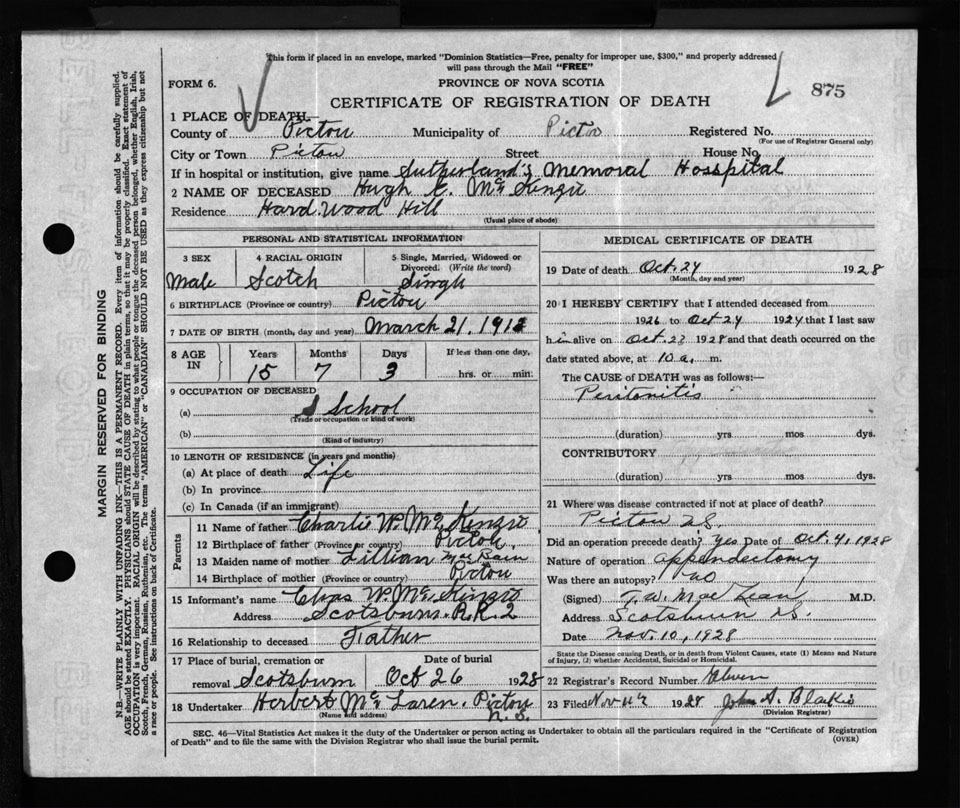 This form if placed in an envelope, marked "Dominion Statistics—Free, penalty for improper use, $300," and properly addressed
will pass through the Mail "FREE"
FORM 6.
PROVINCE OF NOVA SCOTIA
875
CERTIFICATE OF REGISTRATION OF DEATH
1 PLACE OF DEATH.—
County of Pictou Municipality of Picto Registered No.
(For use of Registrar General only)
City or Town Pictou Street House No.
If in hospital or institution, give name Sutherland's Memorial Hosspital
2 NAME OF DECEASED Hugh Mc Kenzie
Residence Hard Wood Hill
(Usual place of abode)
PERSONAL AND STATISTICAL INFORMATION
3 SEX
Male
4 RACIAL ORIGIN
Scotch
5 Single, Married, Widowed or
Divorced. (Write the word)
Single
6 BIRTHPLACE (Province or country) Pictou
7 DATE OF BIRTH (month, day and year) March 21. 1913
8 AGE IN
Years Months Days If less than one day,
15 7 3 hrs. or min.
9 OCCUPATION OF DECEASED
(a) School
(Trade or occupation or kind of work)
(b)
(Kind of industry)
10 LENGTH OF RESIDENCE (in years and months)
(a) At place of death Life
(b) In province
(c) In Canada (if an immigrant)
Parents
11 Name of father Charlie W. Mc Kenzie
12 Birthplace of father (Province or country) Pictou.
13 Maiden name of mother Lillian MacBain
14 Birthplace of mother (Province or country) Pictou
15 Informant's name Chas W. Mc Kinzie
Address Scotsburn. R.R.2
16 Relationship to deceased Father
17 Place of burial, cremation or Date of burial
removal Scotsburn Oct 26 1928
18 Undertaker Herbert Mc Laren. Pictou
(Name and address) N.S.
MEDICAL CERTIFICATE OF DEATH
19 Date of death Oct. 24 1928
(Month, day and year)
20 I HEREBY CERTIFY that I attended deceased from
1926 to Oct 24 1924 that I last saw
him alive on Oct. 23 1928 and that death occurred on the
date stated above, at 10 a. m.
The CAUSE of DEATH was as follows:—
Peritonitis
(duration) yrs mos dys.
CONTRIBUTORY
(duration) yrs. mos. dys.
21 Where was disease contracted if not at place of death?
Pictou N.S.
Did an operation precede death? yes Date of Oct. 4, 1928
Nature of operation appendectomy
Was there an autopsy? no
(Signed) T. W. MacLean M.D.
Address Scotsburn N.S.
Date Nov. 10, 1928
State the Disease causing Death, or in death from Violent Causes, state (1) Means and Nature
of Injury, (2) whether Accidental, Suicidal or Homicidal.
22 Registrar's Record Number Eleven
23 Filed Nov 11th 1928 John S. Blaikie
(Division Registrar)
SEC. 46—Vital Statistics Act makes it the duty of the Undertaker or person acting as Undertaker to obtain all the particulars required in the "Certificate of Registration
of Death" and to file the same with the Division Registrar who shall issue the burial permit.
(OVER)
MARGIN RESERVED FOR BINDING
N.B.—WRITE PLAINLY WITH UNFADING INK—THIS IS A PERMANENT RECORD. Every item of information should be carefully supplied.
AGE should be stated EXACTLY. PHYSICIANS should STATE CAUSE OF DEATH in plain terms, so that it may be properly classified. Exact statement of
OCCUPATION is very important. RACIAL ORIGIN will be described by stating to what people or tongue the deceased person belonged, whether English, Irish,
Scotch, French, German, Russian, Ruthenian, etc. The terms "AMERICAN" or "CANADIAN" SHOULD NOT BE USED as they express citizenship but not
a race or people. See instructions on back of Certificate.